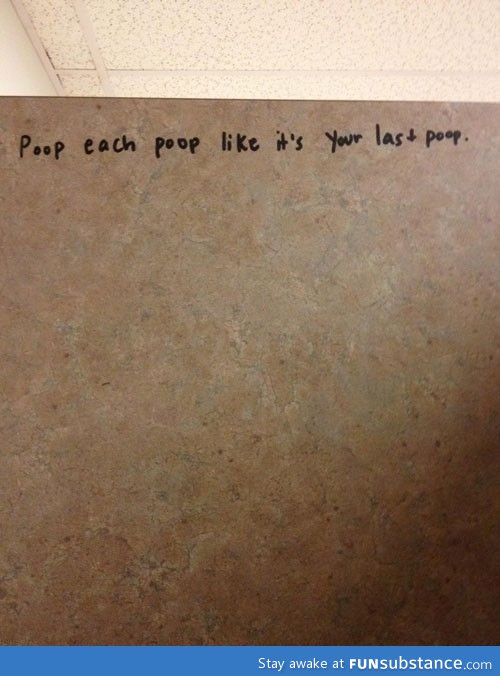 Poop each poop like it's your last poop.
Stay awake at FUNsubstance.com